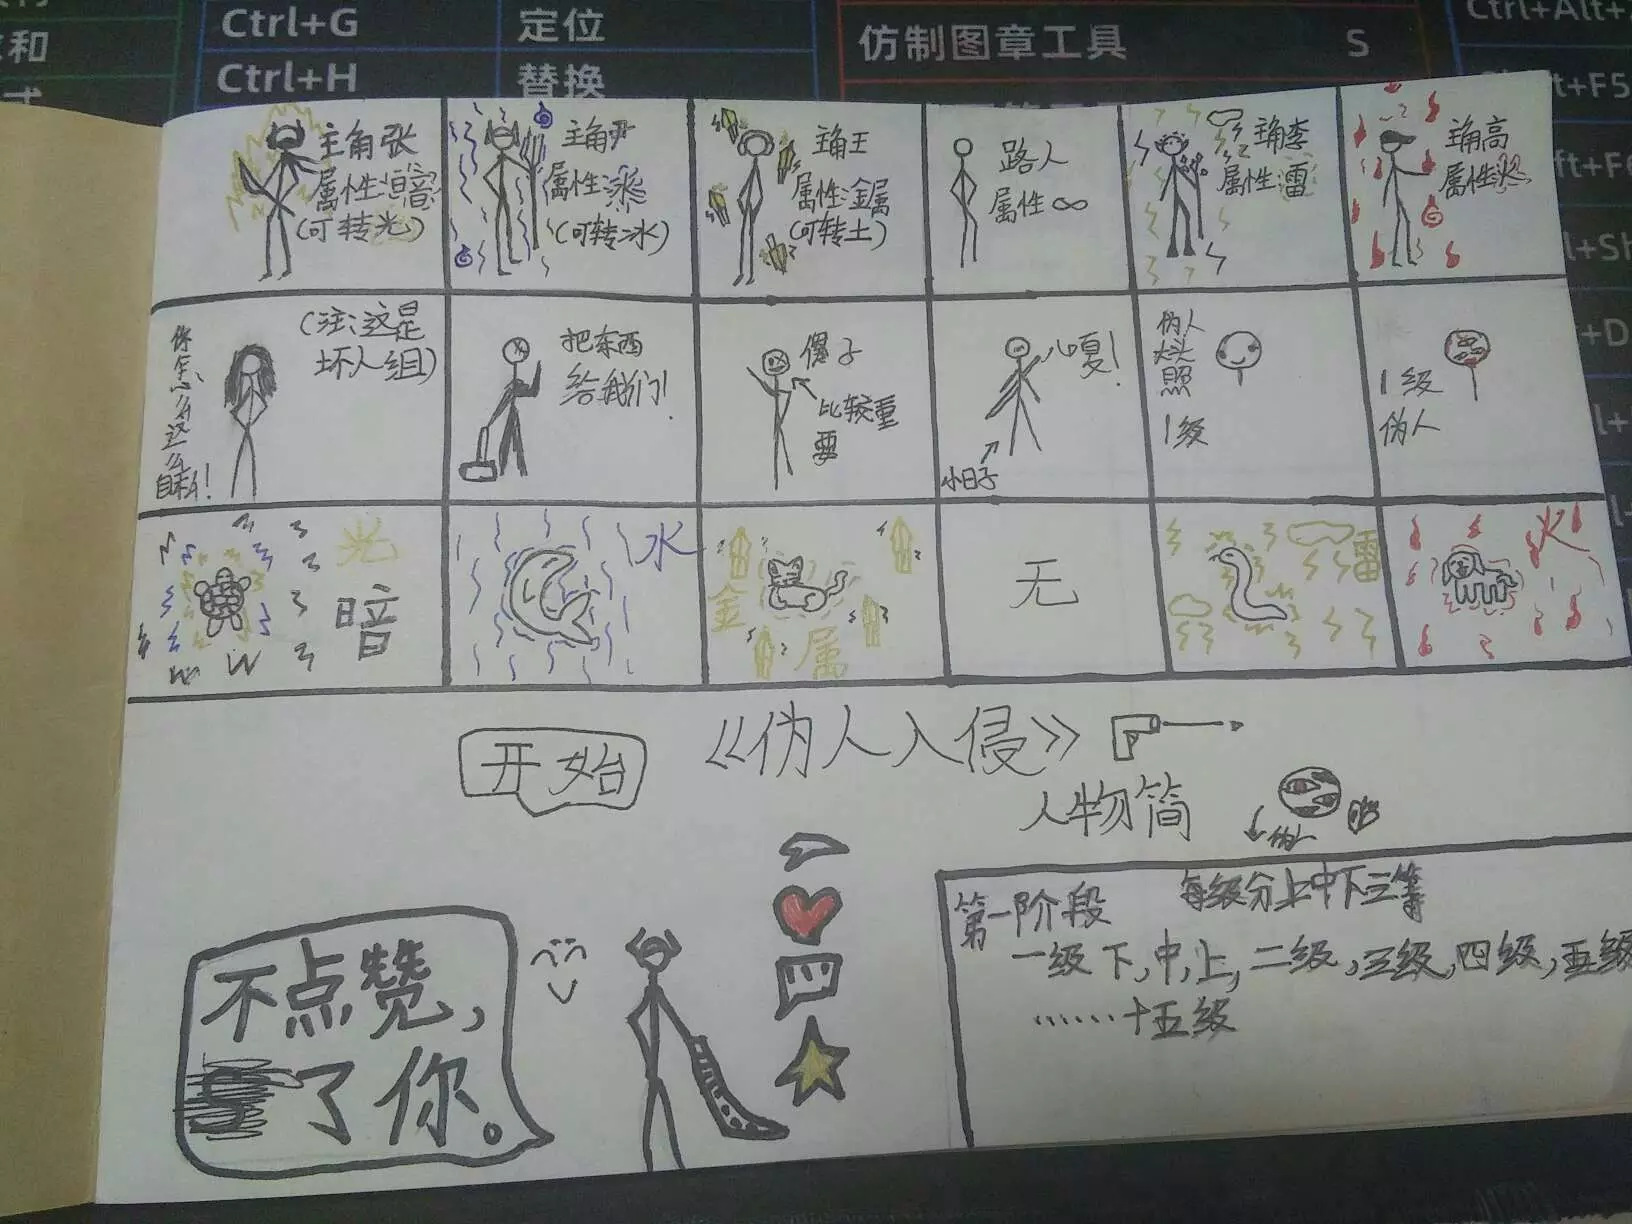 Ctrl+G 定位
Ctrl+H 替换
仿制图章工具 S
主角张
属性:暗
(可转光)
主角尹
属性:水
(可转冰)
主角王
属性:金属
(可转土)
路人
属性∞
主角李
属性:雷
主角高
属性:火
你怎么这么自私!
(注:这是
坏人组)
把东西
给我们!
傻子
比较重
要
心嘎!
小日子
伪人
大头
照
1级
1级
伪人
光
暗
水
金
属
无
雷
火
开始
《伪人入侵》
人物简
伪人
第一阶段
每级分上中下三等
一级下,中,上,二级,三级,四级,五级
……十五级
不点赞,
了你。